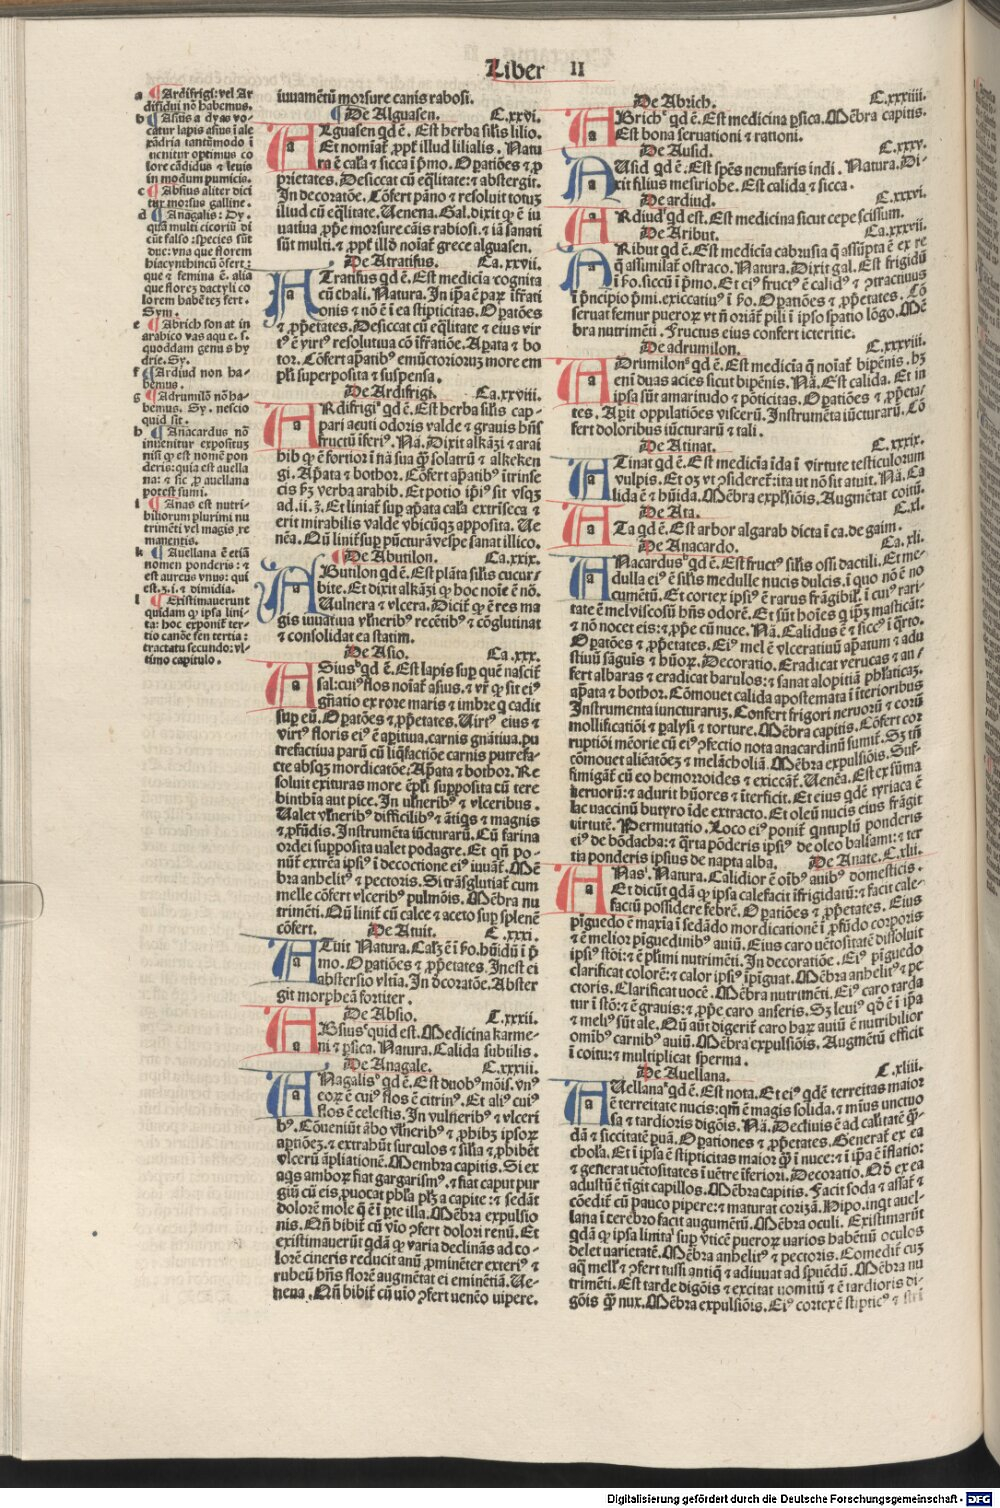 Liber II
a ¶ Ardifrigi: vel Ar
difidui nō habemus.
b ¶ Asius a dyaꝰ vo
catur lapis asius ī ale
xādria tantūmodo ī
uenitur optimus co
lore cādidus ⁊ leuis
in modum pumicis.
c ¶ Absius aliter dici
tur morsus galline.
d ¶ Anagalis: Dy.
qua multi cicoriū di
cūt falso: species sūt
due: vna que florem
hiacynthincū ōfert:
que ⁊ femina ē. alia
que flores dactyli co
lorem habētes fert.
Sym.
e ¶ Abrich son at in
arabico vas aque. s.
quoddam genus hy
drie. Sy.
f ¶ Ardiud non ha-
bemus.
g ¶ Adrumilō nō ha-
bemus. Sy. nescio
quid sit.
h ¶ Anacardus nō
inuenitur expositus
nisi ꝙ est nomē pon
deris: quia est auella
na: ⁊ sic ꝓ auellana
potest sumi.
i ¶ Anas est nutri-
biliorum plurimi nu
trimēti vel magis re
manentis.
k ¶ Auellana ē etiā
nomen ponderis: ⁊
est aureus vnus: qui
est. ʒ. i. ⁊ dimidia.
l ¶ Existimauerunt
quidam ꝙ ipsa lini-
ta: hoc exponit ter-
tio canōe sen tertia:
tractatu secundo: vl-
timo capitulo.
iuuamētū morsure canis rabosi.
¶ De Alguasen. C.xxvi.
Alguasen qd ē. Est herba silis lilio.
Et nomīat ꝓpt illud lilialis. Natu
ra ē cala ⁊ sicca ī pmo. Opatiōes ⁊ ꝓ
prietates. Desiccat cū eqlitate: ⁊ abstergit.
In decoratōe. Cōfert pāno ⁊ resoluit totuʒ
illud cū eqlitate. Uenena. Gal. dixit ꝙ ē iu
uatiua ꝓpe morsure cāis rabiosi. ⁊ iā sanati
sūt multi. ⁊ ꝓpt illō noīat grece alguasen.
De Atratifus. Ca.xxvii.
ATratifus qd ē. Est medicīa cognita
cū chali. Natura. In ipa ē pars īfriati
onis ⁊ nō ē ī ea stipticitas. Opatōes
⁊ ꝓpetates. Desiccat cū eqlitate ⁊ eius vir
tꝰ ē virtꝰ resolutiua cō īfriatiōe. Apata ⁊ bo
tor. Cōfert apatibꝰ emūctorioruʒ more em
plri superposita ⁊ suspensa.
De Ardifrigi. Ca.xxviii.
ARdifrigiᵃ qd ē. Est herba silis cap-
pari acuti odoris valde ⁊ grauis hn̄s
fructū īferiꝰ. Nā. Dixit alkāzi ⁊ arai
hib ꝙ ē fortior ī nā sua ꝙ̄ solatrū ⁊ alkeken
gi. Apata ⁊ bothor. Cōfert apatibꝰ ītrinse
cis pʒ verba arahib. Et potio ipiꝰ sit vsqʒ
ad. ii. ʒ. Et liniat sup apata cala extriseca ⁊
erit mirabilis valde vbicūqʒ apposita. Ue
nēa. Qn̄ linit sup pūcturā vespe sanat illico.
¶ De Abutilon. Ca.xxix.
AButilon qd ē. Est plāta silis cucur-
bite. Et dixit alkāzi ꝙ hoc noīe ē nō.
Uulnera ⁊ vlcera. Dicit ꝙ ē res ma
gis iuuatiua vlneribꝰ recētibꝰ ⁊ cōglutinat
⁊ consolidat ea statim.
De Asio. Ca.xxx.
ASiusᵇ qd ē. Est lapis sup quē nascit
sal: cuiꝰ flos noīat asius. ⁊ vr ꝙ sit eiꝰ
gn̄atio ex rore maris ⁊ imbre q cadit
sup eū. Opatōes ⁊ ꝓpetates. Uirtꝰ eius ⁊
virtꝰ floris eiꝰ ē apitiua. carnis gnātiua. pu
trefactiua parū cū liqfactiōe carnis putrefa-
cte absqʒ mordicatōe: Apata ⁊ bothor. Re
soluit exituras more ēpli supposita cū tere
binthia aut pice. In vlneribꝰ ⁊ vlceribus.
Ualet vlneribꝰ difficilibꝰ ⁊ ātiqs ⁊ magnis
⁊ ꝓfūdis. Instrumēta iūcturarū. Cū farina
ordei supposita ualet podagre. Et qn̄ po-
nūt extrēa ipsiꝰ ī decoctione eiꝰ iuuāt. Mē
bra anhelitꝰ ⁊ pectoris. Si trāsglutiat cum
melle cōfert vlceribꝰ pulmōis. Mēbra nu
trimēti. Qn̄ linit cū calce ⁊ aceto sup splenē
cōfert. De Atuit. C.xxxi.
ATuit Natura. Calʒ ē ī po. hūidū ī p
mo. Opatiōes ⁊ ꝓpetates. Inest ei
abstersio vltīa. In dcoratōe. Abster
git morpheā fortiter.
De Absio. C.xxxii.
ABsiusᶜ quid est. Medicina karme-
ni ⁊ psica. Natura. Calida subtilis.
De Anagale. C.xxxiii.
ANagalisᵈ qd ē. Est duobꝰ mōis. vnꝰ
eorꝫ ē cuiꝰ flos ē citrinꝰ. Et aliꝰ cuiꝰ
flos ē celestis. In vulneribꝰ ⁊ vlceri
bꝰ. Cōueniūt ābo vlneribꝰ ⁊ ꝓhibʒ ipsorꝫ
aptiōeʒ. ⁊ extrabūt surculos ⁊ silia ⁊ ꝓhibēt
vlcerū āpliationē. Membra capitis. Si ex
aqs amborꝫ fiat gargarismꝰ. ⁊ fiat caput pur
giū cū eis, puocat phlā plʒ a capite: ⁊ sedāt
dolorē mole q ē ī pte illa. Mēbra expulsio
nis. Qn̄ bibit cū vio ꝯfert dolori renū. Et
existimauerūt qdā ꝙ varia declinās ad co-
lorē cineris reducit anū ꝓminēter exteriꝰ ⁊
rubeū hn̄s florē augmētat ei eminētiā. Ue-
nena. Qn̄ bibit cū uio ꝯfert uenēo uipere.
De Abrich. C.xxxiiii.
ABrichᵉ qd ē. Est medicina psica. Mēbra capitis.
Est bona seruationi ⁊ rationi.
De Ausid. C.xxxv.
AUsid qd ē. Est spēs nenufaris indi. Natura. Di-
xit filius mesiriohe. Est calida ⁊ sicca.
De ardiud. C.xxxvi.
ARdiudᶠ qd est. Est medicina sicut cepe scissum.
De Aribut. Ca.xxxvii.
ARibut qd ē. Est medicīa cabrusia q assūpta ē ex re
q̄ assimilat ostraco. Natura. Dixit gal. Est frigidū
ī po. siccū ī pmo. Et eiꝰ fructꝰ ē calidꝰ ⁊ ꝯtractiuus
ī pncipio pmi. exiccatiuꝰ ī po. Opatiōes ⁊ ꝓpetates. Cō
seruat femur pueroꝫ vt n̄ oriāt pili ī ipso spatio lōgo. Mē
bra nutrimēti. Fructus eius confert ictericie.
De adrumilon. C.xxxviii.
ADrumilonᵍ qd ē. Est medicīa q noīat bipēnis. hʒ
eni duas acies sicut bipēnis. Nā. Est calida. Et in
ipsa sūt amaritudo ⁊ pōticitas. Opatiōes ⁊ ꝓpeta-
tes. Apit oppilatiōes viscerū. Instrumēta iūcturarū. Cō
fert doloribus iūcturarū ⁊ tali.
De Atinat. C.xxxix.
ATinat qd ē. Est medicīa īda ī virtute testiculorum
vulpis. Et oʒ vt ꝯsideret: ita ut nō sit atuit. Nā. Ca
lida ē ⁊ hūida. Mēbra explsiōis. Augmētat coitū.
De Ata. C.xl.
ATa qd ē. Est arbor algarab dicta ī ca. de gaim.
De Anacardo. Ca.xli.
ANacardusʰ qd ē. Est fructꝰ silis ossi dactili. Et me-
dulla eiꝰ ē silis medulle nucis dulcis. ī quo nō ē no
cumētū. Et cortex ipsiꝰ ē rarus frāgibil. ī cuiꝰ rari-
tate ē melviscosū hn̄s odorē. Et sūt hoīes q ipʒ masticāt:
⁊ nō nocet eis: ⁊ ꝓpe cū nuce. Nā. Calidus ē ⁊ siccꝰ ī qrto.
Opatōes ⁊ ꝓpetates. Eiꝰ mel ē vlceratiuū apatum ⁊ adu
stiuū sāguis ⁊ hūorꝫ. Decoratio. Eradicat verucas ⁊ au-
fert albaras ⁊ eradicat barulos: ⁊ sanat alopitiā phlaticaʒ.
apata ⁊ bothor. Cōmouet calida apostemata ī īterioribus
Instrumenta iuncturaruʒ. Confert frigori neruorū ⁊ eorū
mollificatiōi ⁊ palysi ⁊ torture. Mēbra capitis. Cōfert cor
ruptiōi mēorie cū eiꝰ ꝯfectio nota anacardinū sumit. Sʒ tn̄
cōmouet alieatōeʒ ⁊ melācholiā. Mēbra expulsiōis. Suf-
fimigāt cū eo hemorroides ⁊ exiccāt. Uenēa. Est ex sūma
neruorū: ⁊ adurit hūores ⁊ īterficit. Et eius qdē tyriaca ē
lac vaccinū butyro īde extracto. Et oleū nucis eius frāgit
virtutē. Permutatio. Loco eiꝰ ponit qntuplū ponderis
eiꝰ de bōdacha: ⁊ qrta pōderis ipsiꝰ de oleo balsami: ⁊ ter
tia ponderis ipsius de napta alba. De Anate. C.xlii.
ANasⁱ. Natura. Calidior ē oībꝰ auibꝰ domesticis.
Et dicūt qdā ꝙ ipsa calefacit īfrigidatū: ⁊ facit cale-
factū possidere febrē. Opatiōes ⁊ ꝓpetates. Eius
pīguedo ē maxīa ī sedādo mordicationē ī ꝓfūdo corporis
⁊ ē melior pīguedinibꝰ auiū. Eius caro uētositatē dissoluit
ipsiꝰ stōi: ⁊ ē plimi nutrimēti. In decoratiōe. Eiꝰ pīguedo
clarificat colorē: ⁊ calor ipsiꝰ īpīguat. Mēbra anhelitꝰ ⁊ pe
ctoris. Clarificat uocē. Mēbra nutrimēti. Eiꝰ caro tarda
tur ī stō: ⁊ ē grauis: ⁊ ꝓpe caro anseris. Sʒ leuiꝰ qd ē ī ipa
⁊ meliꝰ sūt ale. Qn̄ aūt digerit caro harꝫ auiū ē nutribilior
omībꝰ carnibꝰ auiū. Mēbra expulsiōis. Augmētū efficit
ī coitu: ⁊ multiplicat sperma.
De Auellana. C.xliii.
AUellanaᵏ qd ē. Est nota. Et eiꝰ qdē terreitas maior
ē terreitate nucis: qm̄ ē magis solida. ⁊ mīus unctuo
sa ⁊ tardioris digōis. Nā. Decliuis ē ad calitatē qn̄-
dā ⁊ siccitatē puā. Opationes ⁊ ꝓpetates. Generat ex ea
chola. Et ī ipsa ē stipticitas maior ꝙ̄ ī nuce: ⁊ ī ipa ē īflatio:
⁊ generat uētositates ī uētre īferiori. Decoratio. Qd ex ea
adustū ē tīgit capillos. Mēbra capitis. Facit soda ⁊ assat ⁊
cōedit cū pauco pipere: ⁊ maturat corizā. Hipo. inqt auel-
lana ī cerebro facit augumētū. Mēbra oculi. Existimarūt
qdāˡ ꝙ ipsa linitaˡ sup vticē puerorꝫ uarios habētiū oculos
delet varietatē. Mēbra anhelitꝰ ⁊ pectoris. Comedit cuʒ
aq mell ⁊ ꝯfert tussi antiq ⁊ adiuuat ad spuēdū. Mēbra nu
trimēti. Est tarde digōis ⁊ excitat uomitū ⁊ ē tardioris di-
gōis ꝙ̄ nux. Mēbra expulsiōis. Eiꝰ cortex ē stipticꝰ ⁊ stri
Digitalisierung gefördert durch die Deutsche Forschungsgemeinschaft - DFG